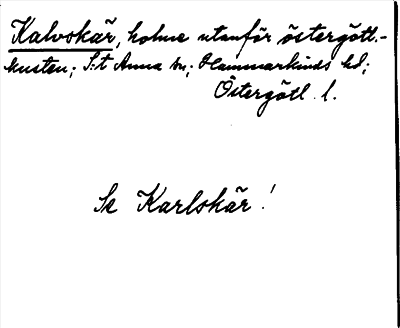 Kalvskär, holme utanför östergötl.-
kusten; S:t Anna sn; Hammarkinds hd;
Östergötl. l.
Se Karlskär!